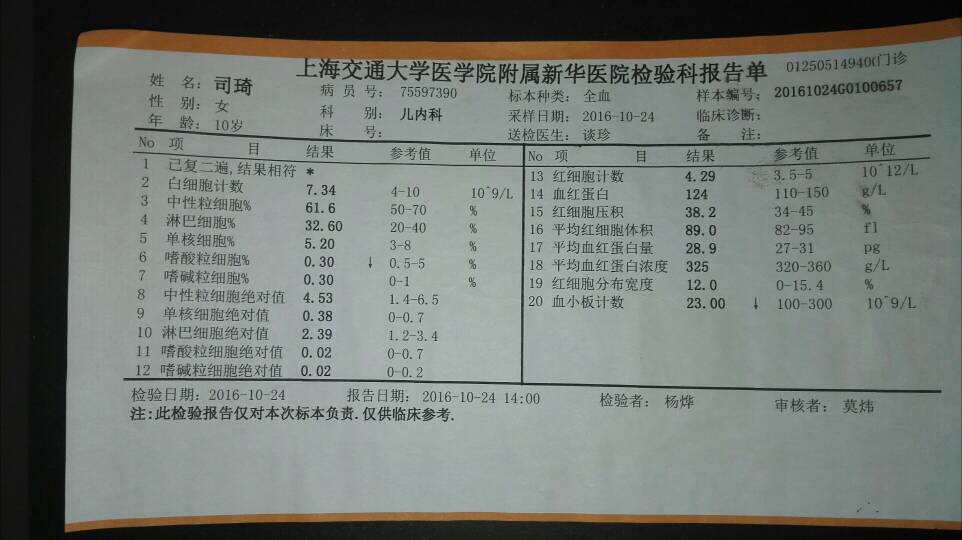 上海交通大学医学院附属新华医院检验科报告单
01250514940(门诊
姓 名: 司琦 病 员 号: 75597390 标本种类: 全血 样本编号: 20161024G0100657
性 别: 女 科 别: 儿内科 采样日期: 2016-10-24 临床诊断:
年 龄: 10岁 床 号: 送检医生: 谈珍 备 注:
No 项 目 结果 参考值 单位
1 已复二遍,结果相符 *
2 白细胞计数 7.34 4-10 10^9/L
3 中性粒细胞% 61.6 50-70 %
4 淋巴细胞% 32.60 20-40 %
5 单核细胞% 5.20 3-8 %
6 嗜酸粒细胞% 0.30 ↓ 0.5-5 %
7 嗜碱粒细胞% 0.30 0-1 %
8 中性粒细胞绝对值 4.53 1.4-6.5
9 单核细胞绝对值 0.38 0-0.7
10 淋巴细胞绝对值 2.39 1.2-3.4
11 嗜酸粒细胞绝对值 0.02 0-0.7
12 嗜碱粒细胞绝对值 0.02 0-0.2
No 项 目 结果 参考值 单位
13 红细胞计数 4.29 3.5-5 10^12/L
14 血红蛋白 124 110-150 g/L
15 红细胞压积 38.2 34-45 %
16 平均红细胞体积 89.0 82-95 fl
17 平均血红蛋白量 28.9 27-31 pg
18 平均血红蛋白浓度 325 320-360 g/L
19 红细胞分布宽度 12.0 0-15.4 %
20 血小板计数 23.00 ↓ 100-300 10^9/L
检验日期: 2016-10-24 报告日期: 2016-10-24 14:00 检验者: 杨烨 审核者: 莫炜
注:此检验报告仅对本次标本负责.仅供临床参考.